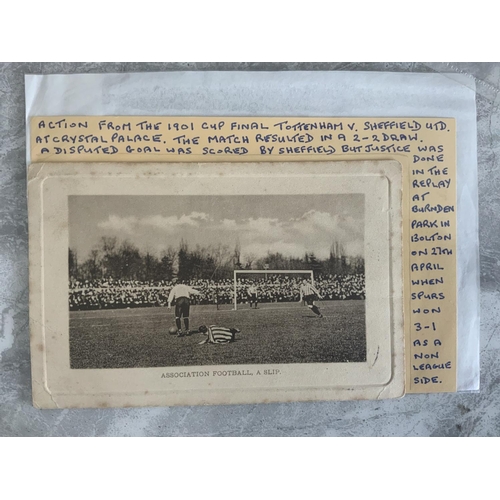 ACTION FROM THE 1901 CUP FINAL TOTTENHAM V. SHEFFIELD UTD.
AT CRYSTAL PALACE. THE MATCH RESULTED IN A 2-2 DRAW.
A DISPUTED GOAL WAS SCORED BY SHEFFIELD BUT JUSTICE WAS
DONE
IN THE
REPLAY
AT
BURNDEN
PARK IN
BOLTON
ON 27TH
APRIL
WHEN
SPURS
WON
3-1
AS A
NON
LEAGUE
SIDE.
ASSOCIATION FOOTBALL, A SLIP.